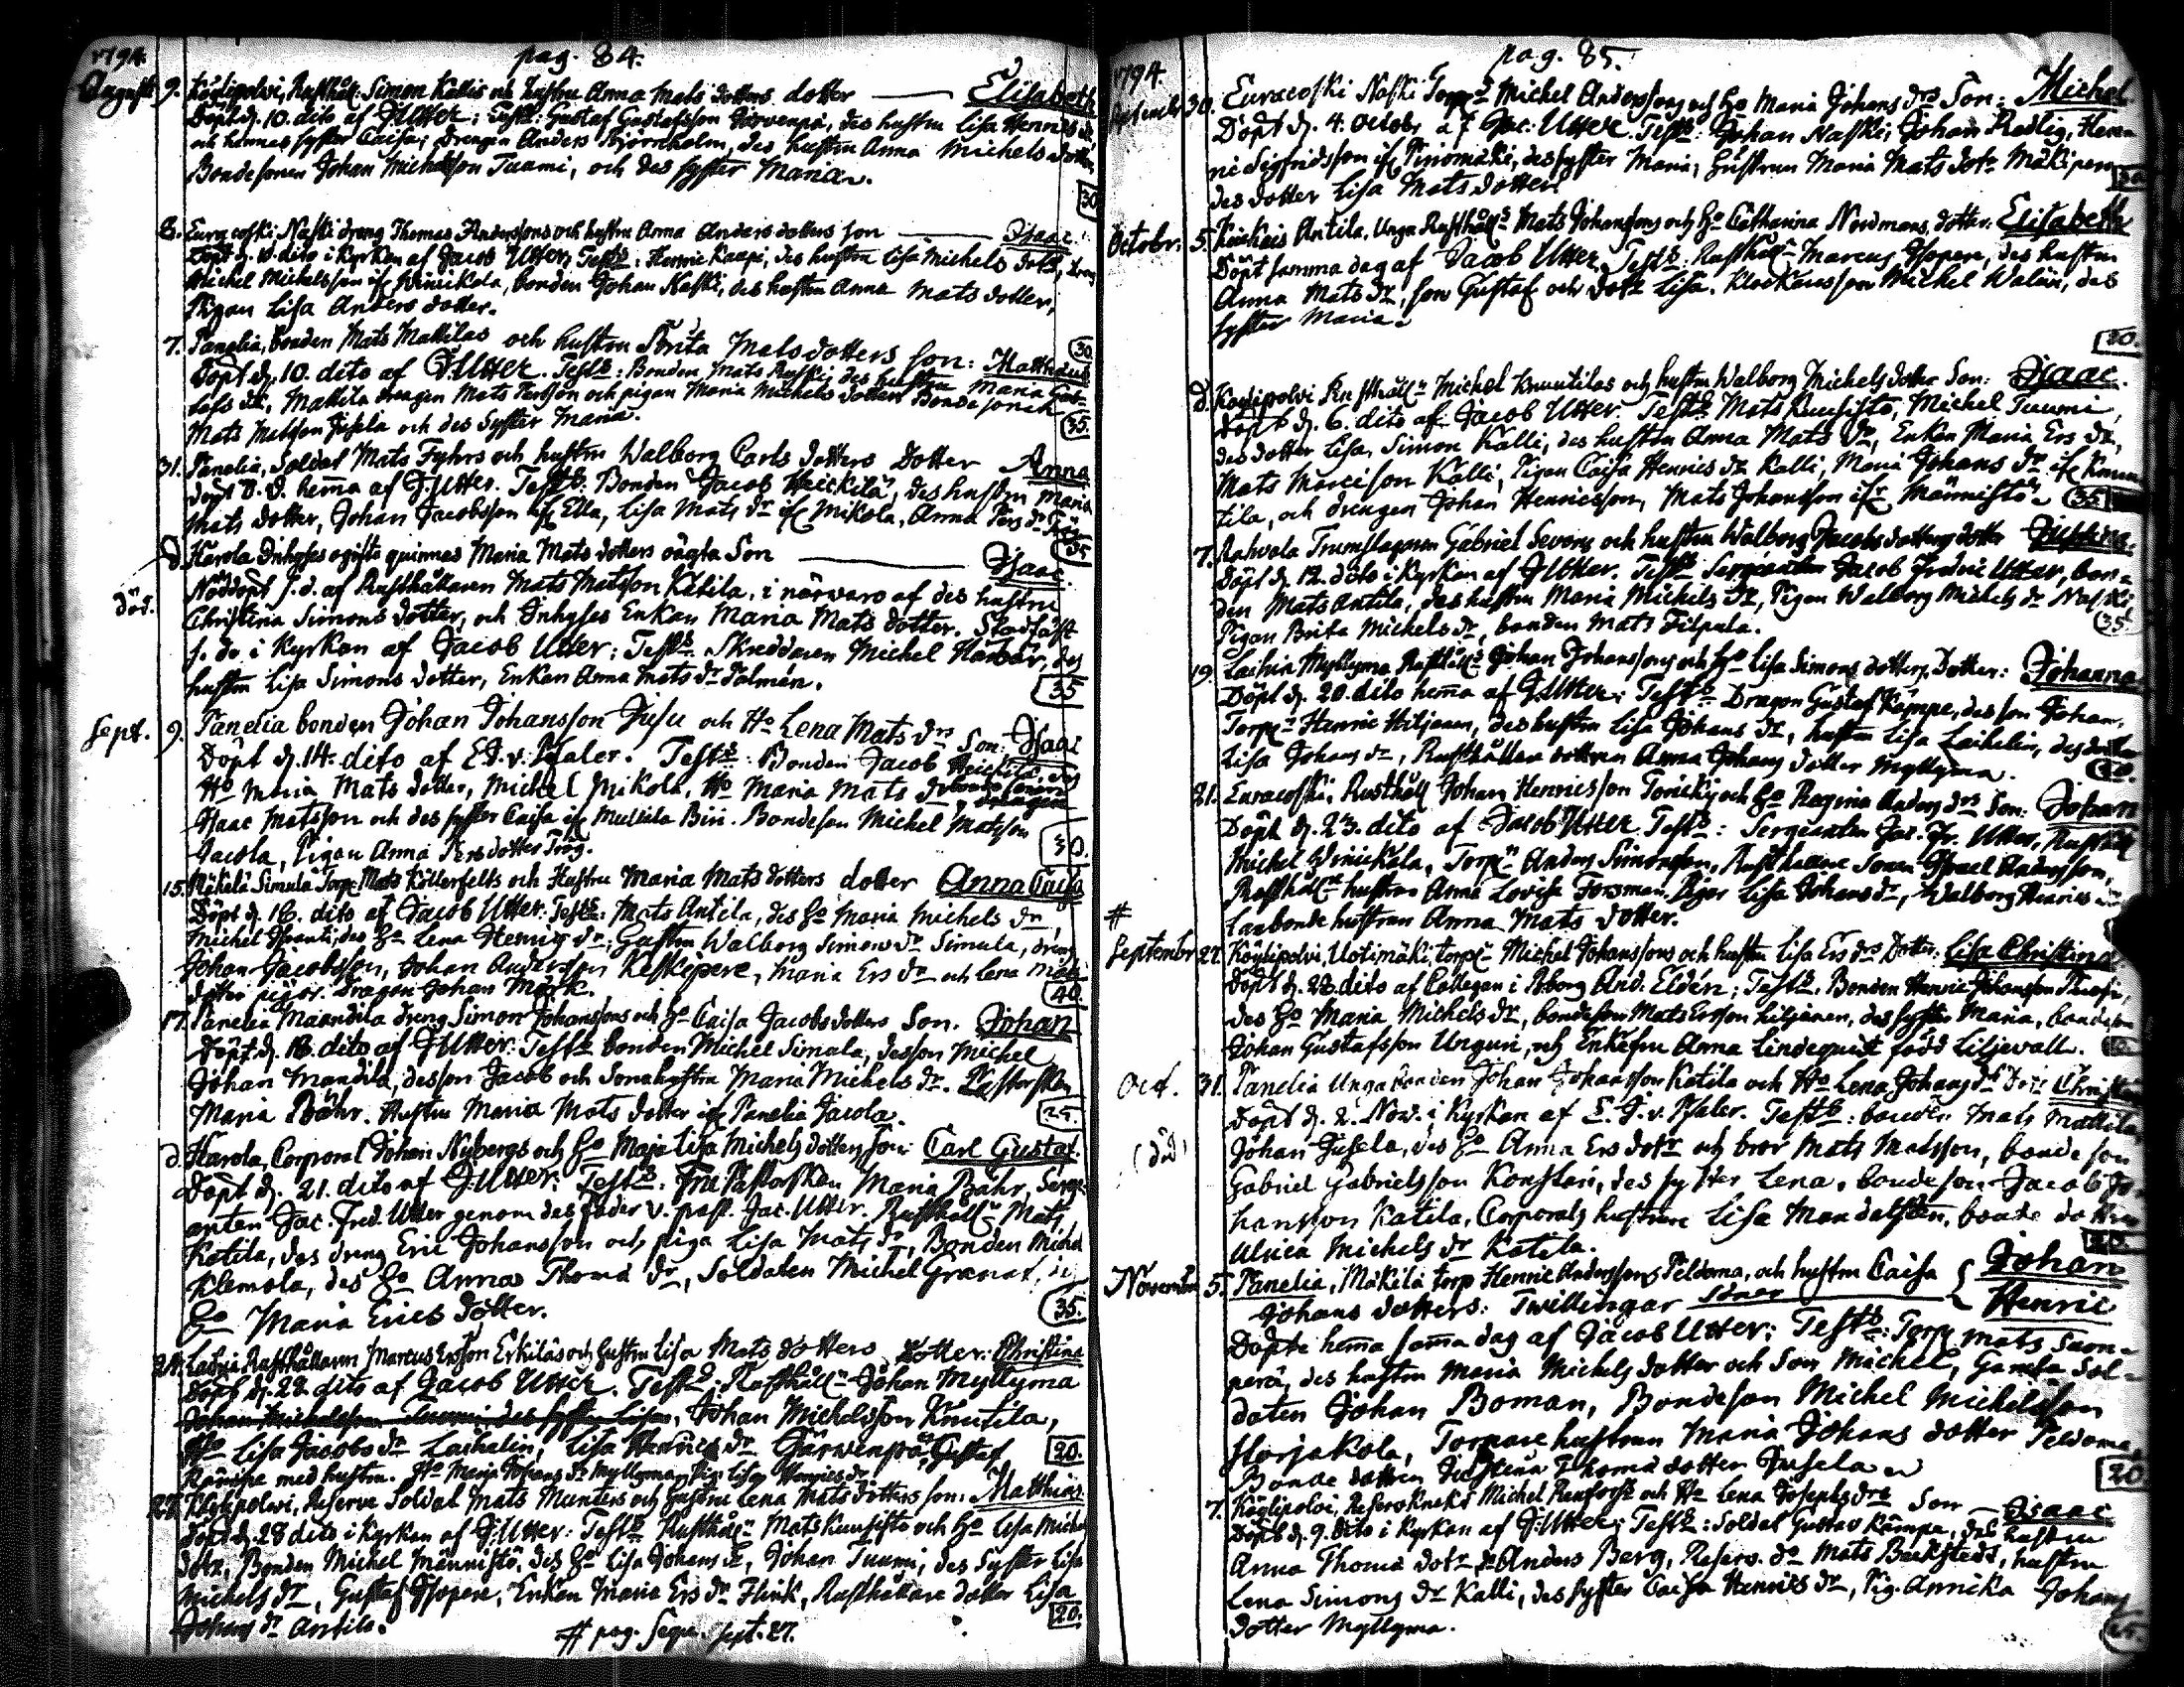 1794.
pag. 84.
Augusti 9. Köylipolvi, Rusthåll: Simon Kallis och hustru Anna Mats dotters dotter Elisabeth
Döpt d. 10. dito af J Utter: Test: Gustaf Gustafsson Järvenpä, des hustru Lisa Henrics
och hennes syster Caisa; drengen Anders Björnholm, des hustru Anna Michels dotter
Bondesonen Johan Michelsson Tuomi, och des syster Maria.
30
8. Euracoski Naski dreng Thomas Anderssons och hustru Anna Anders dotters son Isaac.
Döpt d. 10. dito i Kyrkan af Jacob Utter, Test: Henric Kaapi, des hustru Lisa Michels dotr, dreng
Michel Michelsson if Winikola, bonden Johan Naski, des hustru Anna Mats dotter,
Pigan Lisa Anders dotter.
30
7. Panelia, bonden Mats Mattilas och hustru Brita Matsdotters son: Matthæus
Döpt d. 10. dito af J. Utter. Test: Bonden Mats Ruski, des hustru Maria Gus-
tafs dr, Mattila drengen Mats Persson och pigan Maria Michels dotter Bonde sonen
Mats Matsson Jusela och des syster Maria.
35.
31. Panelia, Soldat Mats Fyhrs och hustru Walborg Carls dotters Dotter Anna
döpt d. d. hema af J. Utter. Test. Bonden Jacob Heickilä, des hustru Maria
Mats dotter, Johan Jacobsson if Ella, Lisa Mats dr if Mikola, Anna Pers dr
35
d. Harola Inhyses ogifta quinnas Maria Mats dotters oägta Son Isaac.
Död.
Nöddöpt s. d. af Rusthållaren Mats Matsson Katila, i närvaro af des hustru
Christina Simons dotter, och Inhyses Enkan Maria Mats dotter. Stadfäst
s. d. i Kyrkan af Jacob Utter: Test. Skreddaren Michel, des
hustru Lisa Simons dotter, Enkan Anna Mats dr Palmén.
35
Sept. 9. Panelia bonden Johan Johansson Jusu och Ho Lena Mats drs Son: Isaac
Döpt d. 14. dito af E. J. v. Pfaler. Test: Bonden Jacob Heickilä, des
Ho Maria Mats dotter, Michel Mikola, Ho Maria Mats dr bonde sonen
drengen
Isaac Matsson och des syster Caisa if Mullila Biri. Bondeson Michel Matsson
Jacola, Pigan Anna Pers dotter Trög.
30.
15. Mäkelä Simula Torp: Mats Köllerfelts och Hustru Maria Mats dotters dotter Anna Caisa
Döpt d. 16. dito af Jacob Utter: Test: Mats Antila, des Ho Maria Michels dr
Michel Isoanti; des Ho Lena Henrics dr: Gustru Walborg Simons dr Simula, dreng
Johan Jacobsson, Johan Andersson Keskepere, Maria Ers dr och Lena Mats
dotter pigor. Dragon Johan Mörk.
40.
17. Panelia Maandila dreng Simon Johanssons och Ho Caisa Jacobs dotters Son. Johan
Döpt d. 18. dito af J Utter: Test bonden Michel Simula, desson Michel
Johan Mandila, desson Jacob och Sonahustru Maria Michels dr. Pastorskan
Maria Bähr. Hustru Maria Mats dotter if Panelia Jacola.
25.
d. Harola, Corporal Johan Nybergs och Ho Maja Lisa Michels dotters son: Carl Gustaf.
Döpt d. 21. dito af J. Utter. Test: Fru Pastorskan Maria Bähr, Serge-
anten Jac. Fred. Utter genom des fader v. past. Jac. Utter. Rusthåll Mats
Katila, des dreng Eric Johansson och piga Lisa Mats dr, Bonden Michel
Klemola, des Ho Anna Thoma dr, Soldaten Michel Granat, des
Ho Maria Erics dotter.
35.
24. Ladvia Rusthållaren Marcus Ersson Erkiläs och hustru Lisa Mats dotters Dotter: Christina
döpt d. 28. dito af Jacob Utter. Test. Rusthåll Johan Myllyma
Johan Michelsson Tuomi, des syster Lisa, Johan Michelsson Knutila,
Ho Lisa Jacobs dr Laihelin, Lisa Henrics dr Järvenpä, Gustaf
Kämpe med hustru. Ho Maja Johans dr Myllyma, Pig. Lisa Henrics dr
20.
27. Köylipolvi, Reserve Soldat Mats Munters och Hustru Lena Mats dotters son: Matthias
Döpt d. 28 dito i Kyrkan af J. Utter: Test: Rusthåll Mats Kuusisto och Ho Lisa Michels
dotr, Bonden Michel Männistö, des Ho Lisa Johans dr, Johan Tuumi, des Syster Lisa
Michels dr, Gustaf Isopere, Enkan Maria Ers dr Flink, Rusthållare dotter Lisa
Johans dr Antila.
20.
# pag. Sequ. Sept. 27.
1794.
pag. 85.
September 30. Euracoski Naski Torp Michel Anderssons och Ho Maria Johans drs Son: Michel
Döpt d. 4. Octobr af Jac: Utter. Test: Johan Naski, Johan Redlig, Hen-
ric Sigfridsson if Piriomäki, des syster Maria, Hustrun Maria Mats dotr Mäkipere
des dotter Lisa Mats dotter.
Octobr: 5. Keickais Antila, Unga Rusthåll Mats Johanssons och Ho Catharina Nordmans dotter: Elisabeth
Döpt samma dag af Jacob Utter. Test: Rusthåll Marcus Isopere, des hustru
Anna Mats dr, son Gustaf och dotr Lisa. Klockarsson Michel Walén, des
syster Maria.
20.
d. Köylipolvi Rusthåll Michel Knuutilas och hustru Walborg Michels dotter Son: Isaac.
Döpt d. 6. dito af Jacob Utter. Test: Mats Kuusisto, Michel Tuumi,
des dotter Lisa, Simon Kalli, des hustru Anna Mats dr, Enkan Maria Ers dr,
Mats Marcisson Kalli, Pigan Caisa Henrics dr Kalli, Maria Johans dr if Knuu-
tila, och drengen Johan Henricsson, Mats Johansson if Männistö.
35
7. Rahvola Trumslagaren Gabriel Sevons och hustru Walborg Jacobs dotters dotter Justina.
Döpt d. 12. dito i Kyrkan af J Utter. Test Sergeanten Jacob Fredric Utter, bon-
den Mats Antila, des hustru Maria Michels dr, Pigan Walborg Michels dr Naski,
Pigan Brita Michels dr, bonden Mats Filpula.
35.
19. Laihia Myllyma Rusthåll Johan Johanssons och Ho Lisa Simons dotters Dotter: Johanna
Döpt d. 20. dito hema af J. Utter; Test: Dragon Gustaf Kämpe, des son Johan,
Torp Henric Hiljanen, des hustru Lisa Johans dr, hustru Lisa Laihelin, des dotter
Lisa Johans dr, Rusthållare dottren Anna Johans dotter Myllyma.
21. Euracoski, Rusthåll Johan Henricsson Tonicky och Ho Regina Anders drs Son: Johan
Döpt d. 23. dito af Jacob Utter. Test: Sergeanten Jac. Fr. Utter, Rusthåll
Michel Winickala, Torp Anders Simonsson, Rusthållare Sonen Israel Andersson,
Rusthåll hustrun Anna Lovisa Forsman. Pigor Lisa Johans dr, Walborg Henrics dr
Lanbonde hustrun Anna Mats dotter.
#
Septembr 27. Köylipolvi, Uotimäki, torp Michel Johanssons och hustru Lisa Ers drs Dotter: Lisa Christina
Döpt d. 28. dito af Collegan i Åborg And. Eldén; Test. Bonden Henric Johansson,
des Ho Maria Michels dr, bondeson Mats Ersson Liljanen, des syster Maria, bondeson
Johan Gustafsson Unguri, och Enkefru Anna Lindequist född Liljewall.
Oct. 31. Panelia Unga bonden Johan Johansson Katila och Ho Lena Johans drs Dotr Christina
(död)
Döpt d. 2. Nov. i Kyrkan af E. J. v. Pfaler. Test: bonden Mats Mattila
Johan Jusela, des Ho Anna Ers dotr och bror Mats Matsson, bonde son
Gabriel Gabrielsson Konstari, des syster Lena. bondeson Jacob Jo-
hansson Katila, Corporals hustrun Lisa Mandalstén, bonde dotter
Ulrica Michels dr Katila.
November 5. Panelia, Mäkilä torp Henric Anderssons Peldoma, och hustru Caisa Johan
Johans dotters: Twillingar Söner Henric
Döpte hema sama dag af Jacob Utter: Test: Torp Mats Suon-
perä, des hustru Maria Michels dotter och Son Michel, Gamla Sol-
daten Johan Boman, Bondeson Michel Michelsson
Horjakola, Torpare hustrun Maria Johans dotter Peldoma
Bonde dotter Justina Thoma dotter Jusela
20
7. Köylipolvi, Reservknekt Michel Renforss och Ho Lena Josephs drs Son Isaac
Döpt d. 9. dito i Kyrkan af J: Utter; Test: Soldat Gustav Kämpe, des hustru
Anna Thoma dotr do Anders Berg, Reserv. do Mats Beckstedt, hustru
Lena Simons dr Kalli, des syster Caisa Henrics dr, Pig. Annika Johans
dotter Myllyma.